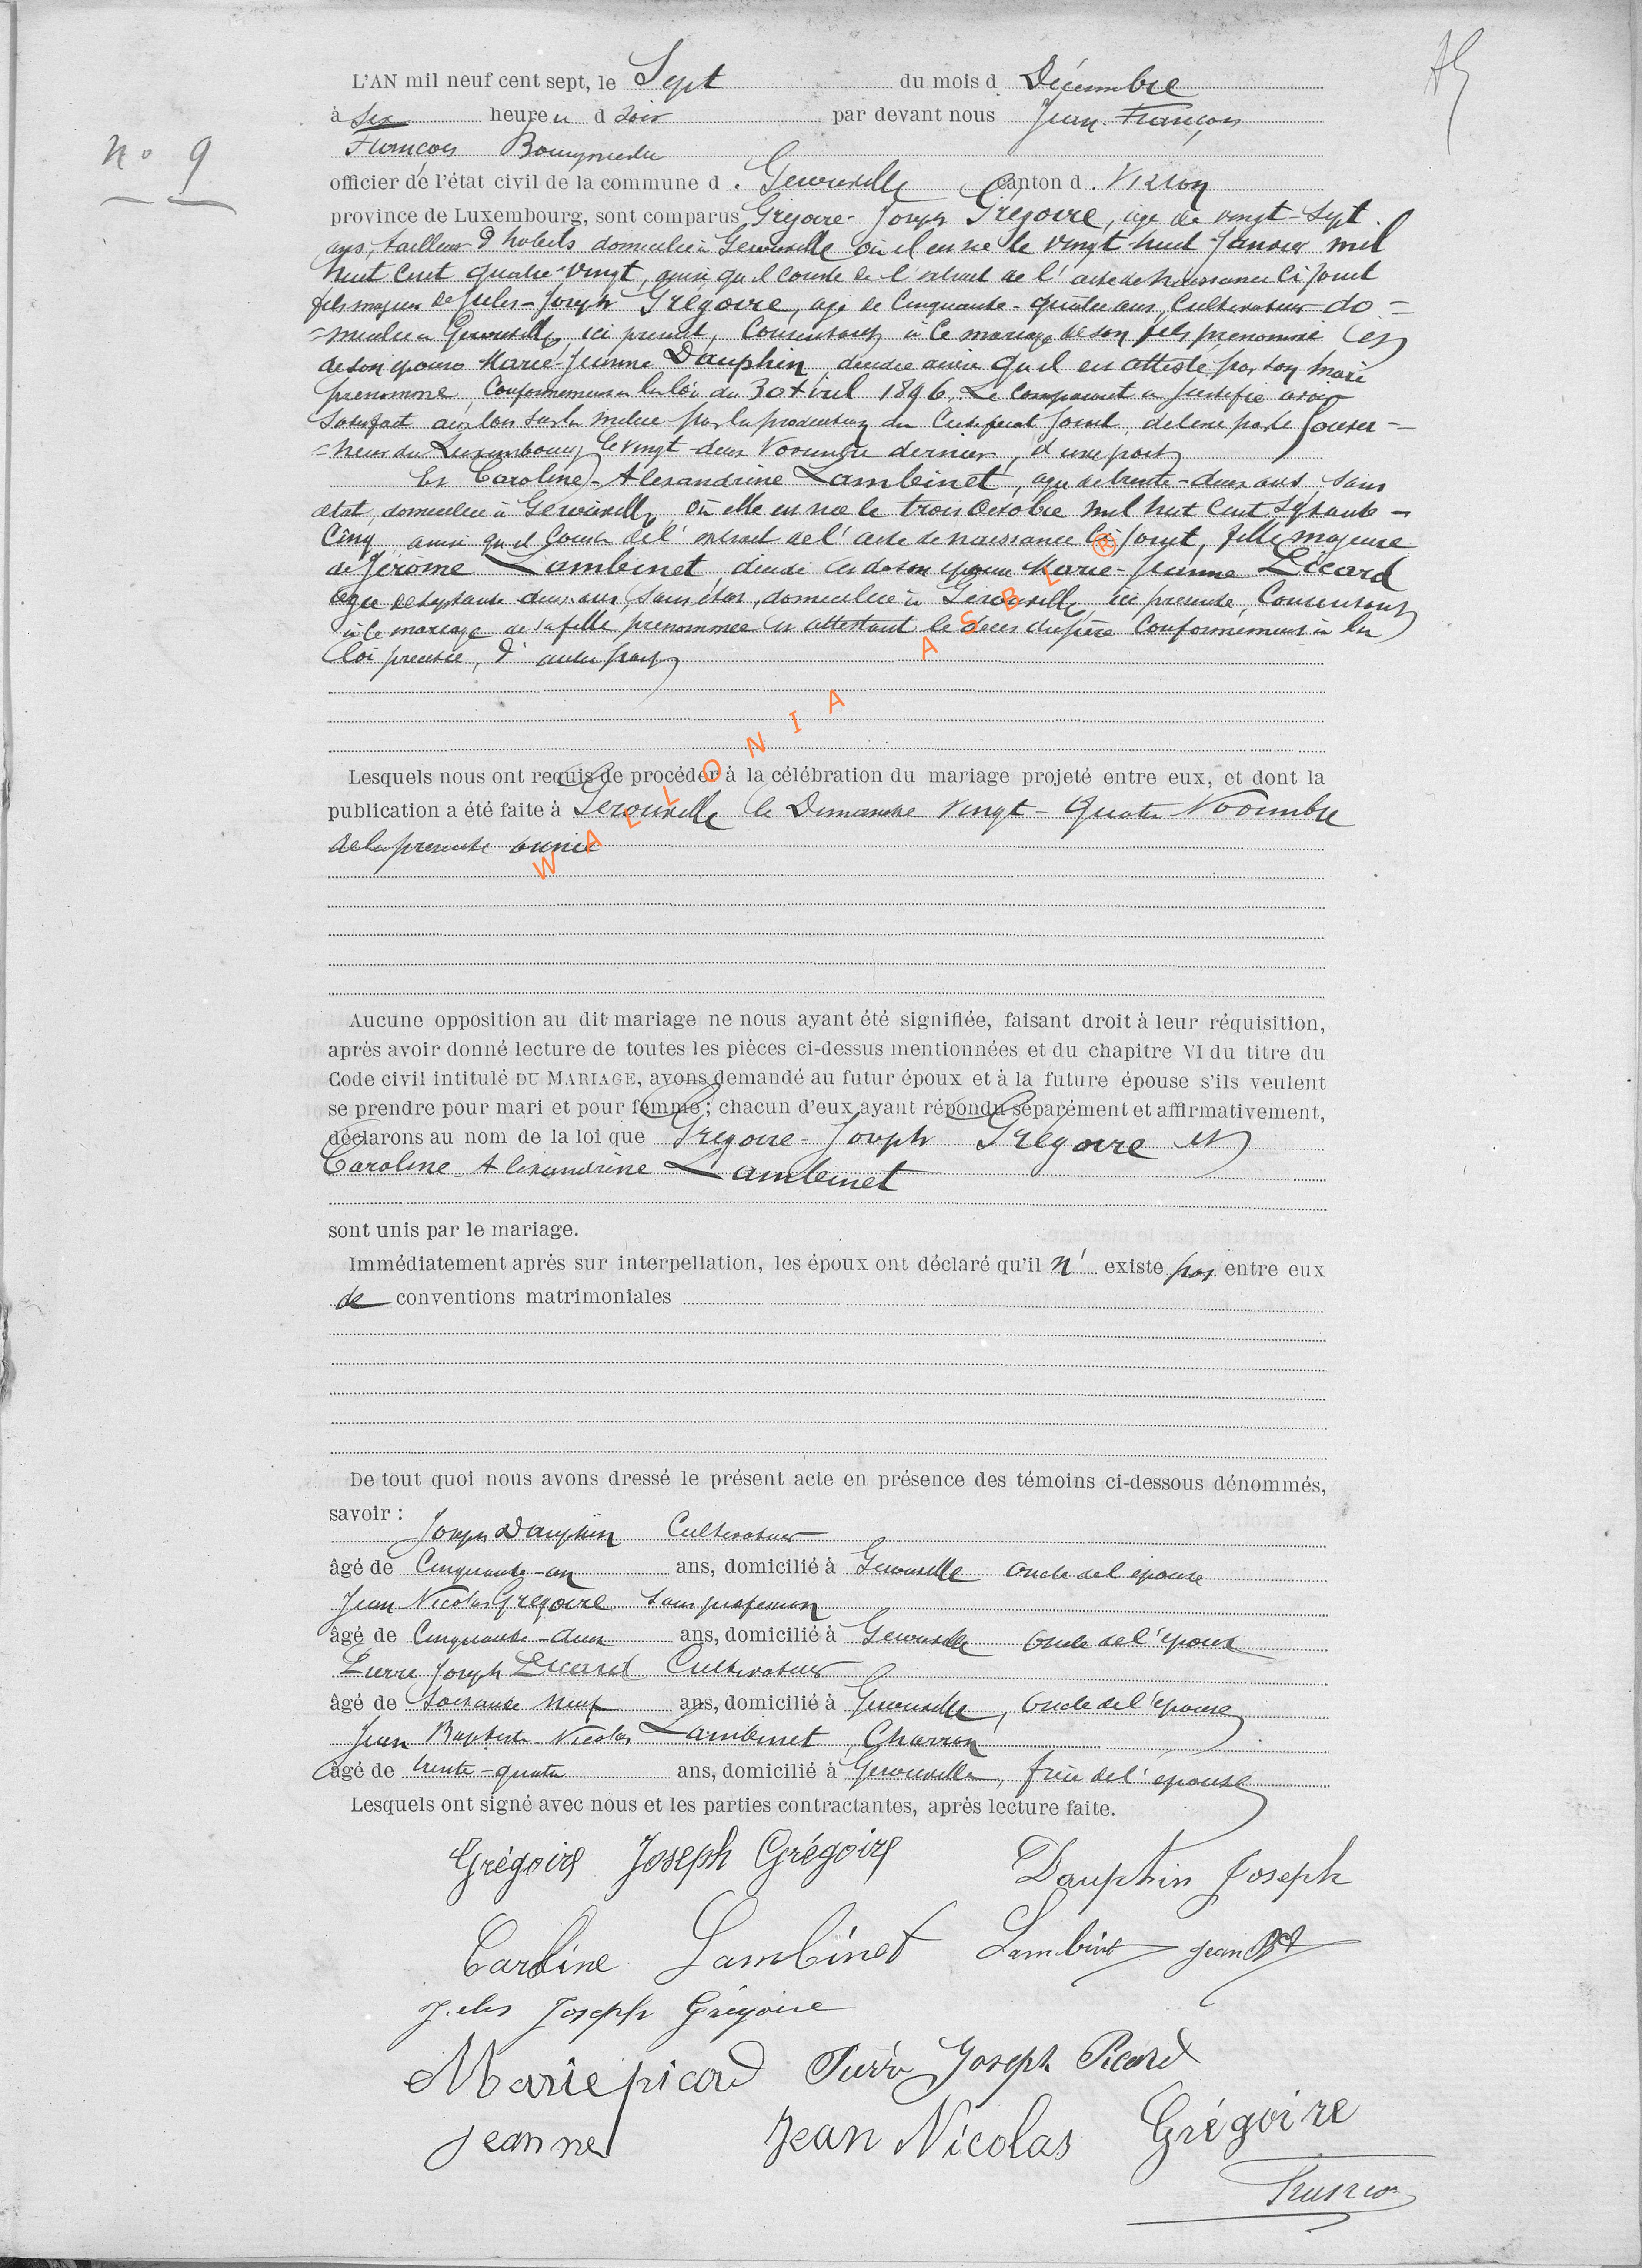 L'AN mil neuf cent sept, le Sept du mois d Décembre
à six heure u d soir par devant nous Jean François
François
n° 9
officier de l'état civil de la commune d. Gerouville canton d. Virton
province de Luxembourg, sont comparus Grégoire-Joseph Grégoire, âgé de vingt-sept
ans, tailleur d'habits domicilié à Gerouville où il est né le vingt-huit Janvier mil
huit cent quatre-vingt, ainsi qu'il conste de l'extrait de l'acte de naissance ci joint
fils majeur de Jules-Joseph Grégoire, âgé de cinquante-quatre ans, Cultivateur do=
=micilié à Gerouville, ici présent, Consentant à ce mariage de son fils prénommé et
de son épouse Marie-Jeanne Dauphin décédée ainsi qu'il est attesté par son mari
prénommé, Conformément à la loi du 30 Avril 1896. Le comparant a justifié avoir
satisfait aux lois sur la milice par la production du Certificat joint, délivré par le Gouver-
=neur du Luxembourg le vingt-deux Novembre dernier, d'une part
Et Caroline-Alexandrine Lambinet, âgée de trente-deux ans, sans
état, domiciliée à Gerouville où elle est née le trois Octobre mil huit cent septante-
Cinq ainsi qu'il conste de l'extrait de l'acte de naissance ci joint, fille majeure
de Jérôme Lambinet, décédé et de son épouse Marie-Jeanne Picard
âgée de septante deux ans, sans état, domiciliée à Gerouville, ici présente, Consentant
à ce mariage de sa fille prénommée et attestant le décès du père Conformément à la
loi précitée, d'autre part
WALLONIA ASBL ®
Lesquels nous ont requis de procéder à la célébration du mariage projeté entre eux, et dont la
publication a été faite à Gerouville le Dimanche vingt-quatre Novembre
de la présente année
Aucune opposition au dit mariage ne nous ayant été signifiée, faisant droit à leur réquisition,
après avoir donné lecture de toutes les pièces ci-dessus mentionnées et du chapitre VI du titre du
Code civil intitulé DU MARIAGE, avons demandé au futur époux et à la future épouse s'ils veulent
se prendre pour mari et pour femme; chacun d'eux ayant répondu séparément et affirmativement,
déclarons au nom de la loi que Grégoire-Joseph Grégoire et
Caroline-Alexandrine Lambinet
sont unis par le mariage.
Immédiatement après sur interpellation, les époux ont déclaré qu'il n' existe pas entre eux
de conventions matrimoniales
De tout quoi nous avons dressé le présent acte en présence des témoins ci-dessous dénommés,
savoir :
Joseph Dauphin Cultivateur
âgé de Cinquante-un ans, domicilié à Gerouville oncle de l'épouse
Jean Nicolas Grégoire sans profession
âgé de Cinquante-deux ans, domicilié à Gerouville oncle de l'époux
Pierre Joseph Picard Cultivateur
âgé de Soixante neuf ans, domicilié à Gerouville, oncle de l'épouse
Jean Baptiste Nicolas Lambinet, Charron
âgé de trente-quatre ans, domicilié à Gerouville, frère de l'épouse
Lesquels ont signé avec nous et les parties contractantes, après lecture faite.
Grégoire Joseph Grégoire Dauphin Joseph
Caroline Lambinet Lambinet Jean Bte
Jules Joseph Grégoire
Marie picard Pierre Joseph Picard
jeanne Jean Nicolas Grégoire